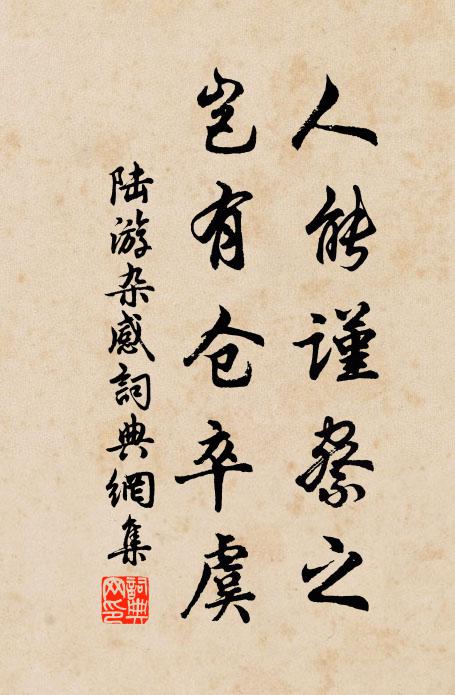 人能謹察之
豈有仓卒虞
陆游杂感詞典網集
詞典网印